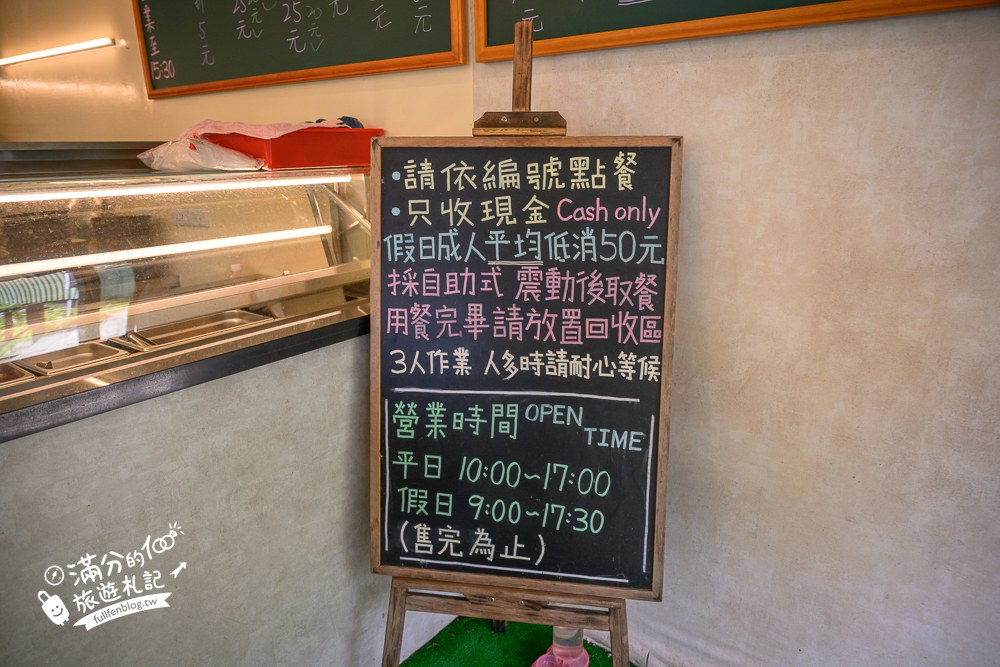 5元
25元
元
元
元
5:30
•請依編號點餐
•只收現金 Cash only
假日成人平均低消50元
採自助式 震動後取餐
用餐完畢請放置回收區
3人作業 人多時請耐心等候
營業時間 OPEN TIME
平日 10:00~17:00
假日 9:00~17:30
(售完為止)
滿分的100
旅遊札記
fullfenblog.tw